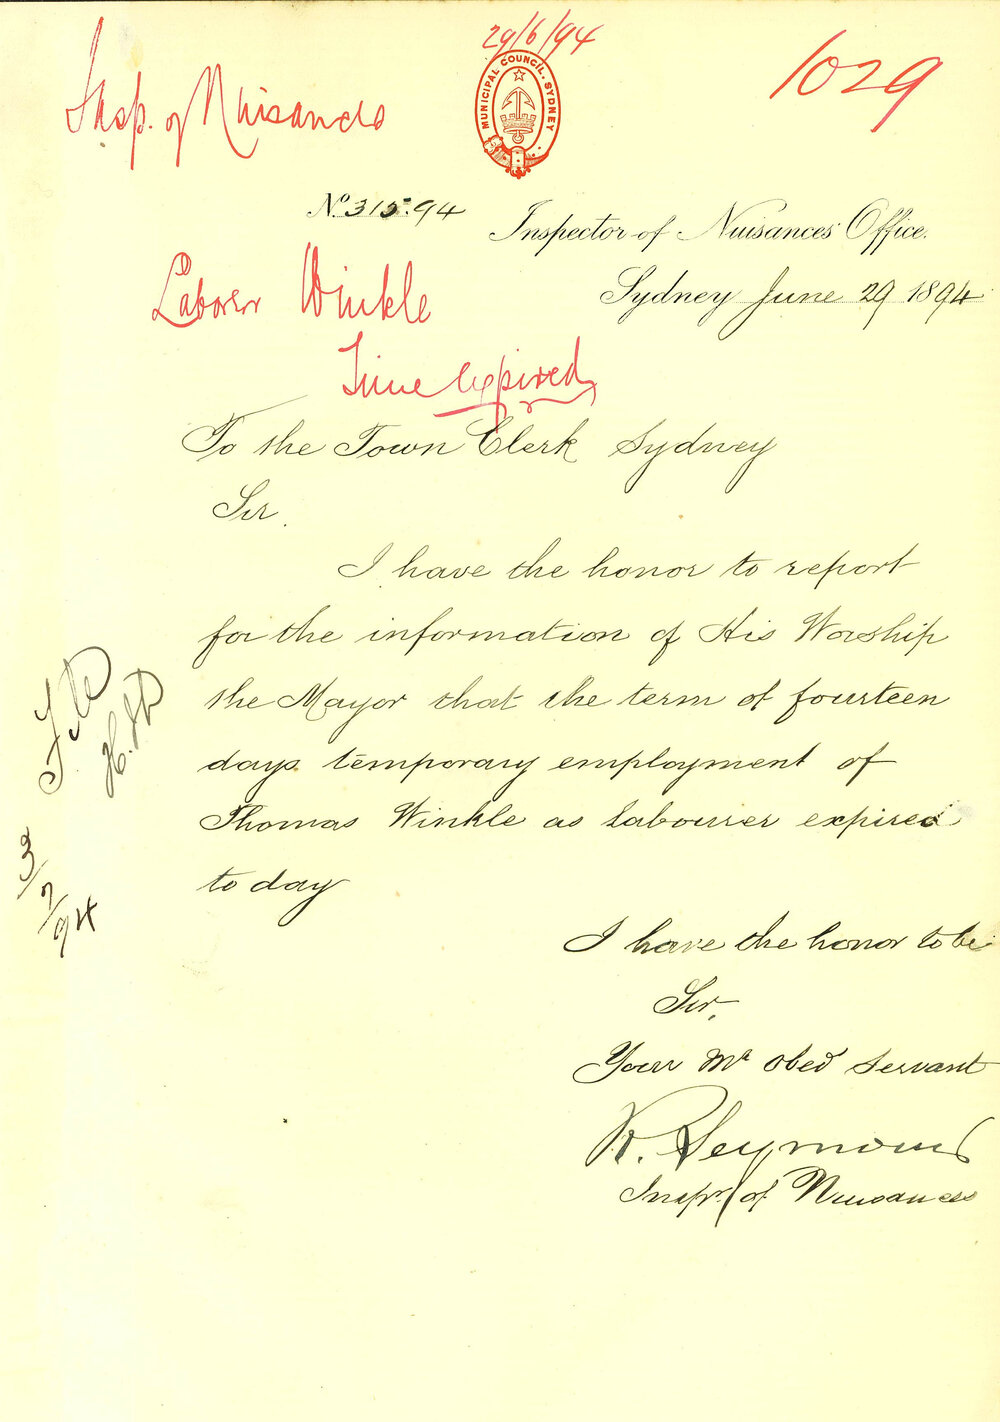 29/6/94
Insp. of Nuisances
1029
MUNICIPAL COUNCIL. SYDNEY
No. 315.94
Inspector of Nuisances Office.
Sydney June 29 1894
Laborer Winkle
Time expired
To the Town Clerk Sydney
Sir.
I have the honor to report
for the information of His Worship
the Mayor that the term of fourteen
days temporary employment of
Thomas Winkle as labourer expired
to day
I have the honor to be
Sir,
Your Mt Obed Servant
R. Seymour
Inspr. of Nuisances
File
3/7/94